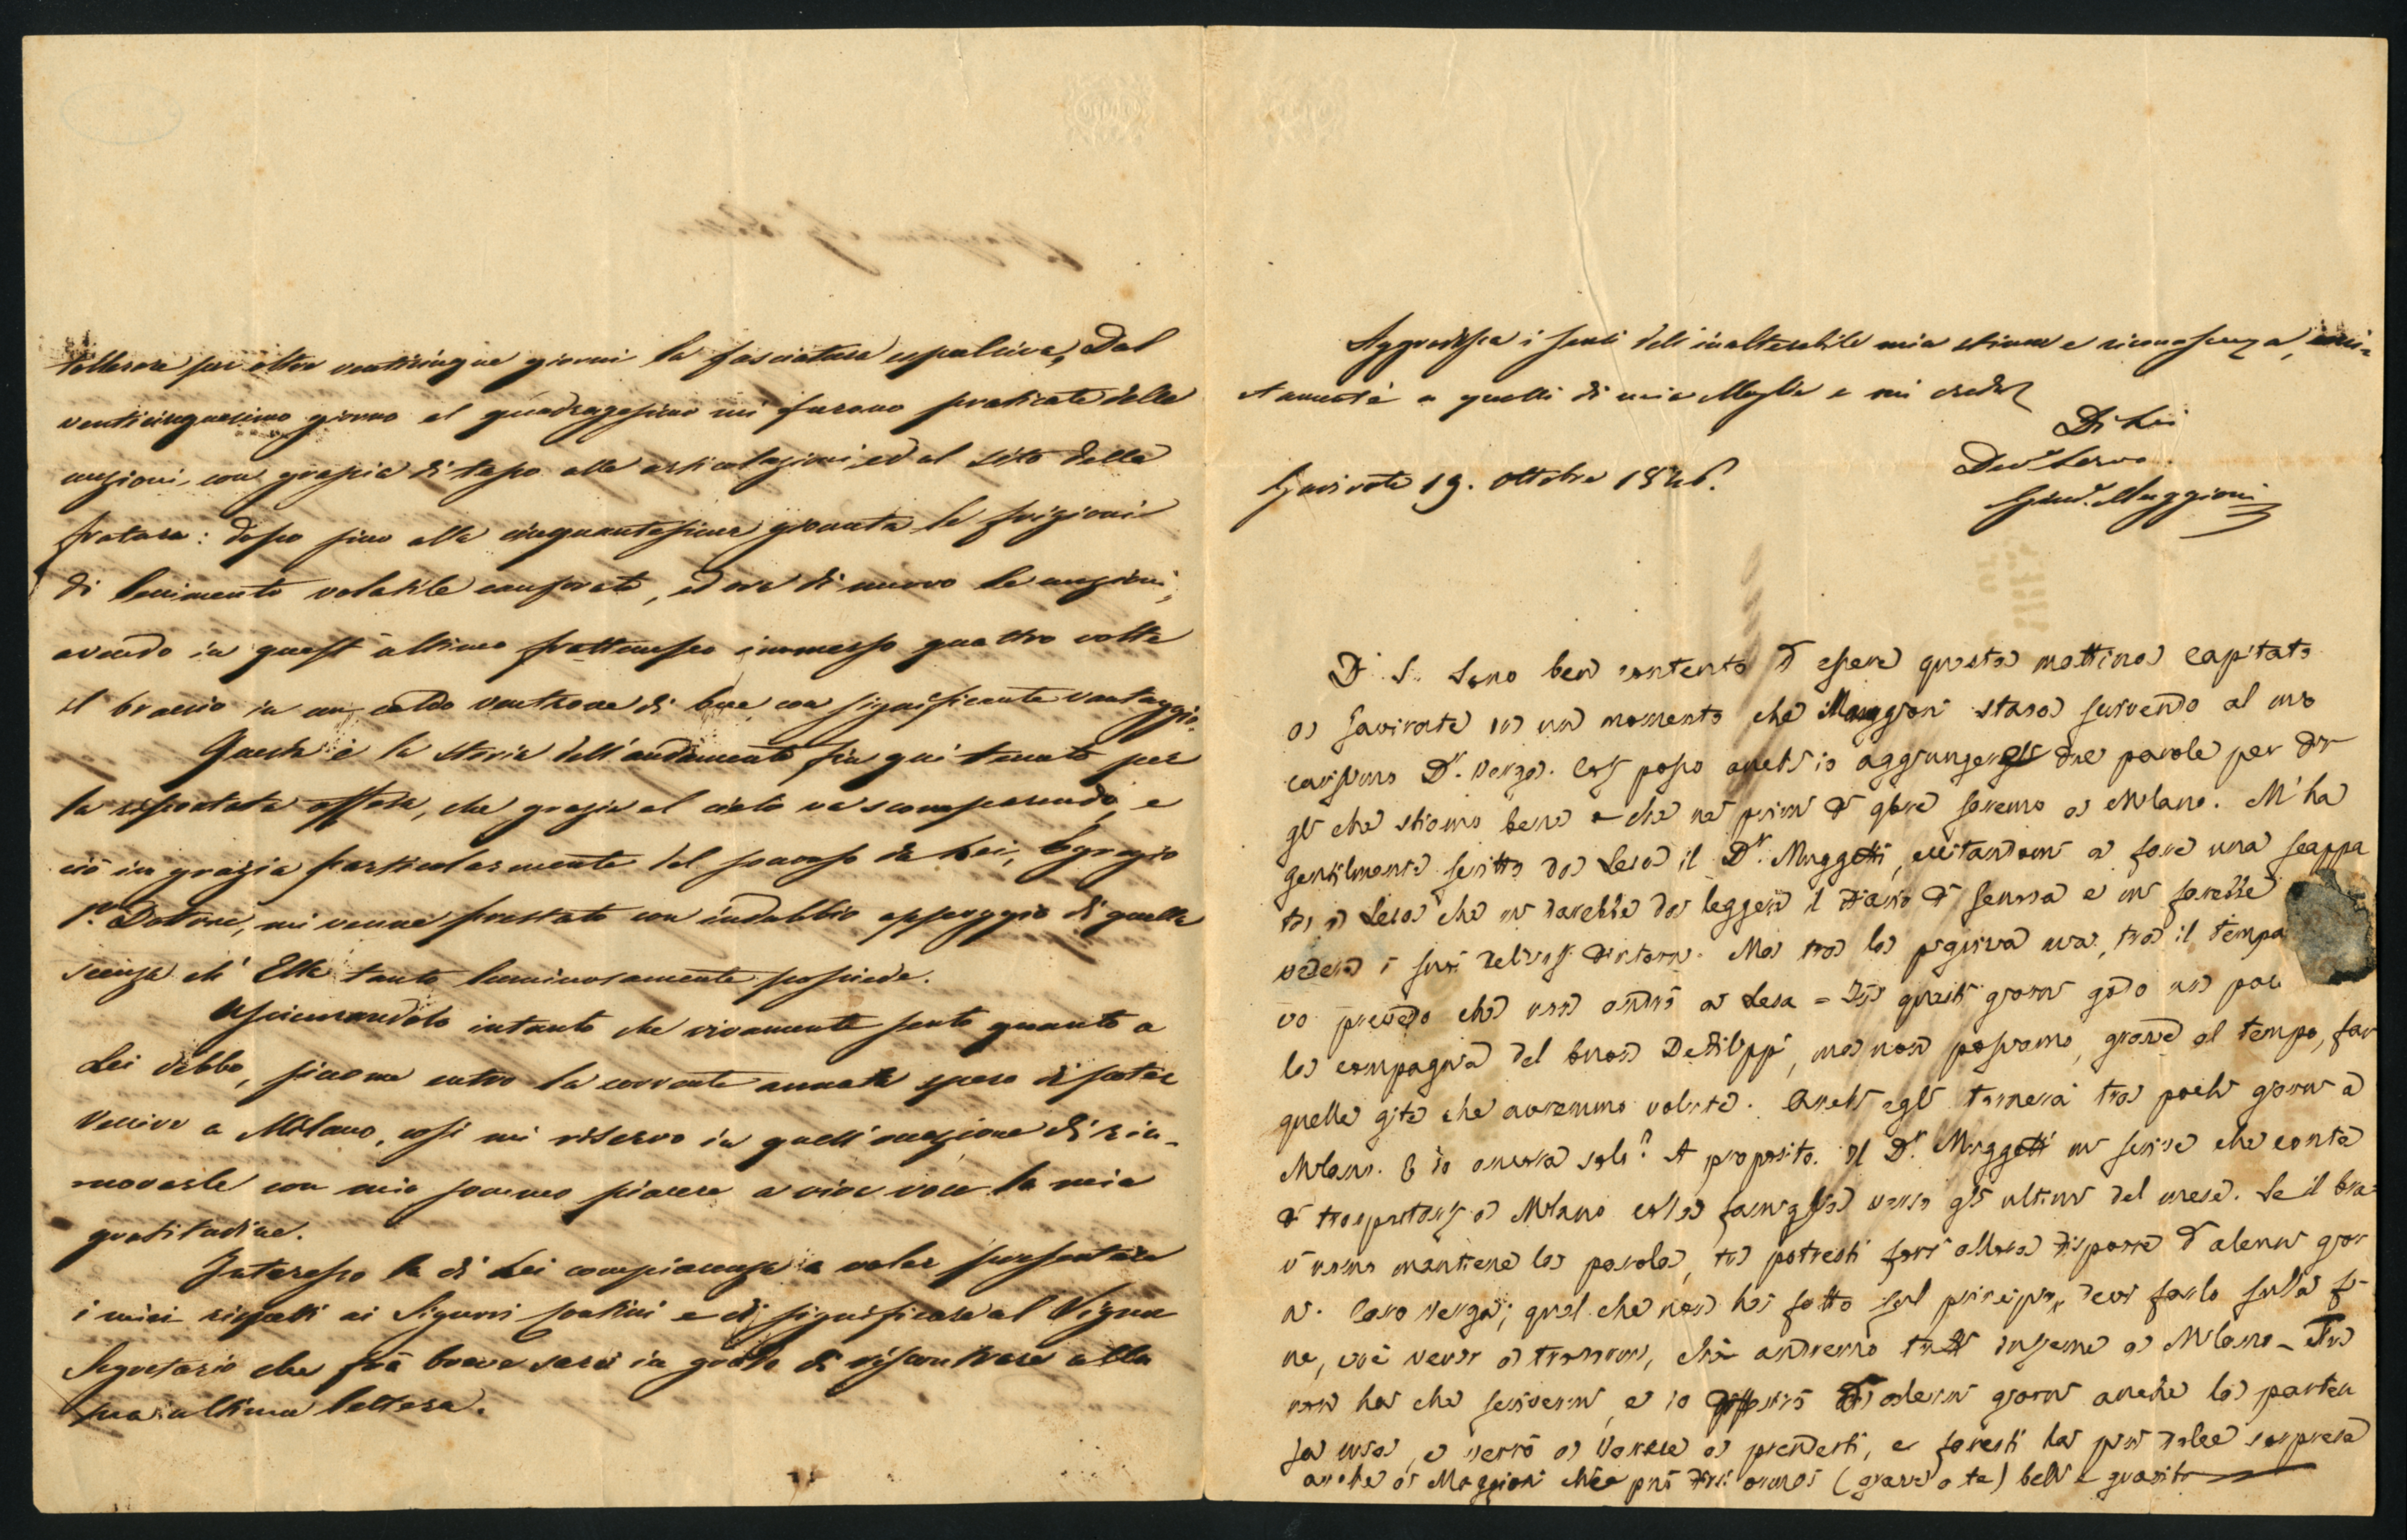 tollerare per oltre venticinque giorni la fasciatura espulsiva, Dal
venticinquesimo giorno al quadragesimo mi furono praticate delle
unzioni con grascia di tasso alle articolazioni, ed al sito della
frattura: dopo sino alla cinquantesima giornata le frizioni
di linimento volatile canforato, ed ora di nuovo le unzioni;
avendo in quest'ultimo frattempo immerso quattro volte
il braccio in un caldo ventrone di bue con significante vantaggio.
Questa è la storia dell'andamento fin qui tenuto per
la riportata offesa, che grazia al cielo va scomparendo, e
ciò in grazia particolarmente del soccorso da Lei, Egregio
Sr. Dottore, mi venne prestato con indubbio appoggio di quella
scienza ch'Ella tanto luminosamente possiede.
Assicurandola intanto che vivamente sento quanto a
Lei debbo, siccome entro la corrente annata spero di poter
venire a Milano, così mi riservo in quell'occasione di rin-
novarle con mio sommo piacere a viva voce la mia
gratitudine.
Interesso la di Lei compiacenza a voler presentare
i miei rispetti ai Signori e di significare al Vigna
Segretario che frà breve sarò in grado di riscontrare alla
sua ultima lettera.
Aggradisca i sensi dell'inalterabile mia stima e riconoscenza, uni-
tamente a quelli di mia Moglie e mi creda
Di Lei
Devo. Servo
Maggioni
Gavirate 19. Ottobre 1846.
D. S. Sono ben contento d'essere questa mattina capitato
a Gavirate in un momento che Maggioni stava scrivendo al mio
carissimo Dr. Verga. Così posso anch'io aggiungergli due parole per dir
gli che stiamo bene e che ne' primi di 9bre saremo a Milano. M'ha
gentilmente scritto da Lesa il Dr. Muggetti, eccitandomi a fare una scappa
ta a Lesa che mi darebbe da leggere il di e mi farebbe
vedere i suoi deliziosi dintorni. Ma tra la pigrizia mia, tra il tempo
vo prevedo che non andrò a Lesa = In questi giorni godo un poco
la compagnia del buon Defilippi, ma non possiamo, grazie al tempo, far
quelle gite che avremmo volute. Anch'egli tornerà tra pochi giorni a
Milano. E io ancora solo? A proposito. Il Dr. Muggetti mi scrive che conta
di trasportarsi a Milano colla famiglia verso gli ultimi del mese. Se il bra-
v'uomo mantiene la parola, tu potresti forse allora disporre d'alcuni gior
ni. Caro Verga; quel che non hai fatto sul principio, devi farlo sulla fi-
ne, cioè venir a trovarmi, che andremo tutti insieme a Milano - Tu
non hai che scrivermi, e io differirò di alcuni giorni anche la parten
za mia, e verrò a Varese a prenderti, e faresti la più dolce sorpresa
anche a Maggioni che può dirsi oramai (grazie a te) bell'e guarito